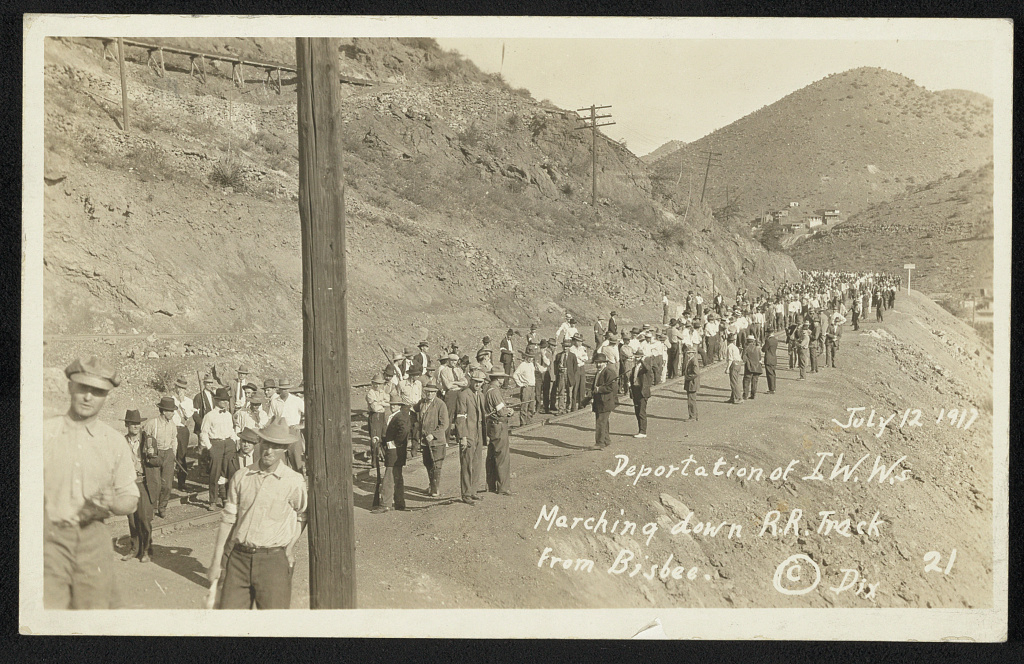 July 12 1917
Deportation of I.W.W.s
Marching down R.R Track
from Bisbee.
© Dix 21